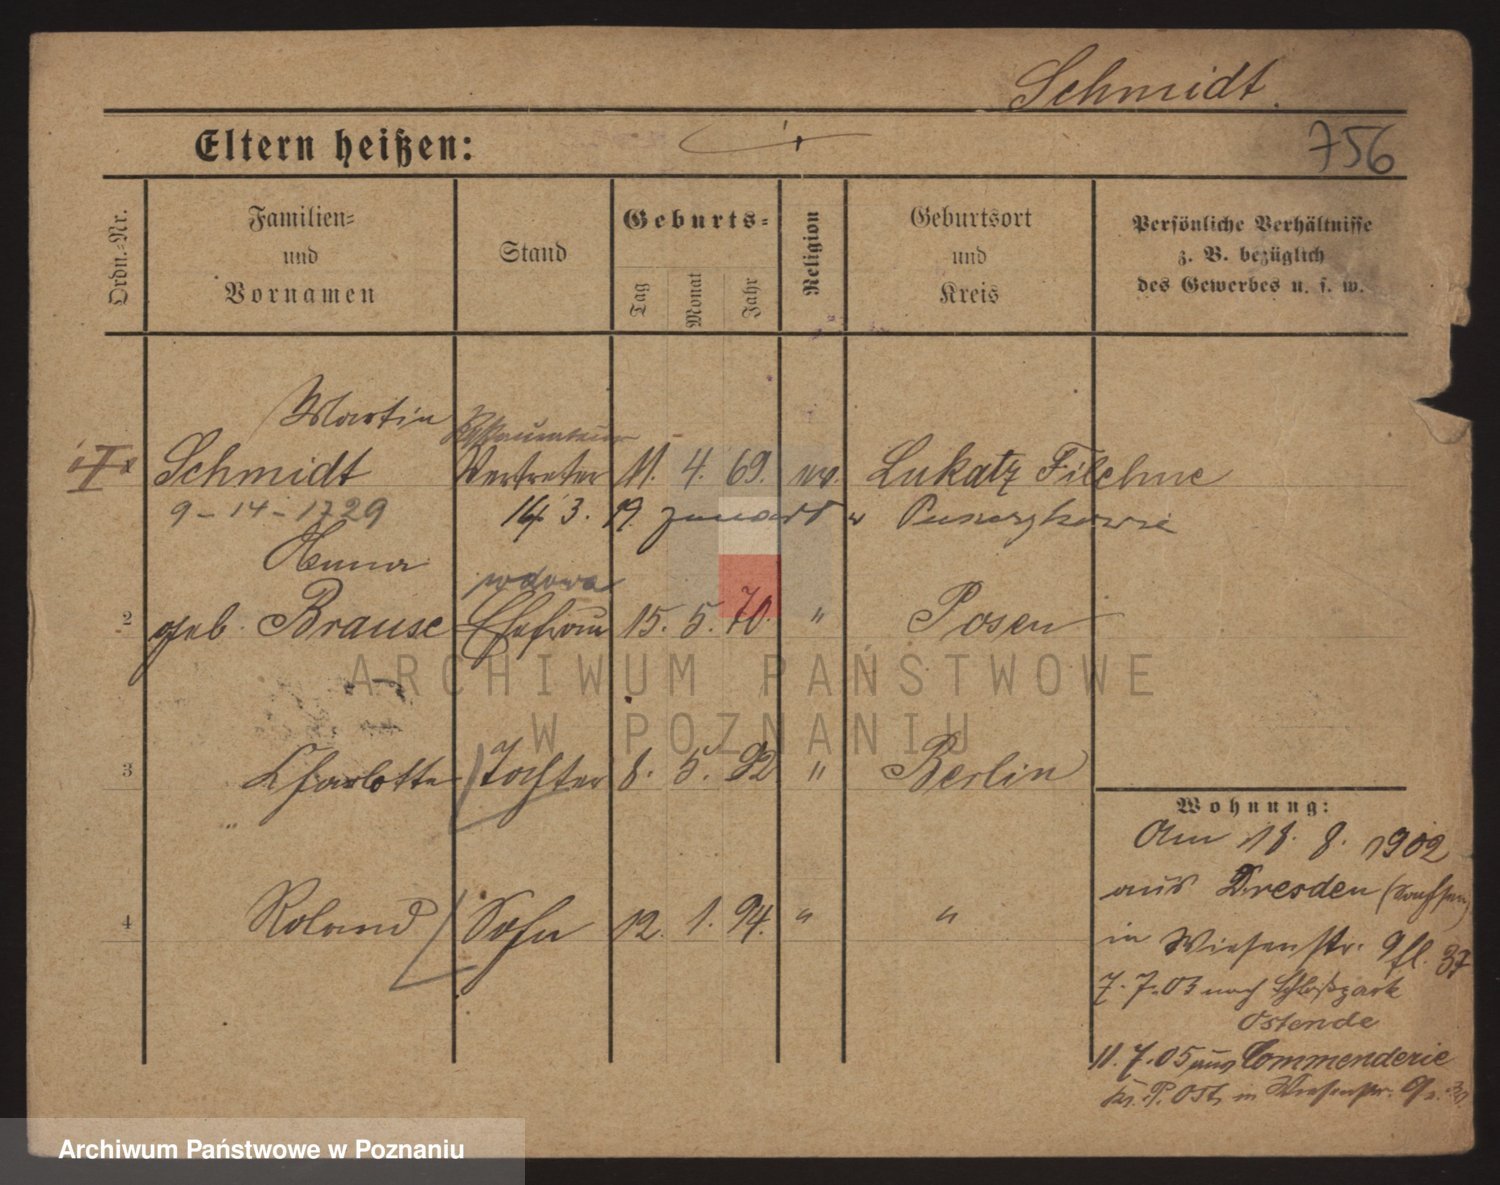 Schmidt.
Eltern heißen:
756
Ordn.-Nr.
Familien-
und
Vornamen
Stand
Geburts-
Tag
Monat
Jahr
Religion
Geburtsort
und
Kreis
Persönliche Verhältnisse
z. B. bezüglich
des Gewerbes u. s. w.
Martin
Restaurateur
Schmidt Vertreter 11. 4. 69. ev. Lukatz Filehne
9-14-1729 14 3. 19.
Hanna
wdowa
2 geb. Brause Ehefrau 15. 5. 70. " Posen
3 Charlotte Tochter 8. 5. 92 " Berlin
4 Roland Sohn 12. 1. 94. " "
Wohnung:
Am 18. 8. 1902
aus Dresden (Sachsen)
in Wiesenstr. 9 fl. 37
7.7.03 nach Schloßpark
Ostende
11.7.05 aus Commenderie
Kr. P. Ost, in Wiesenstr. 9
ARCHIWUM PAŃSTWOWE
W POZNANIU
Archiwum Państwowe w Poznaniu